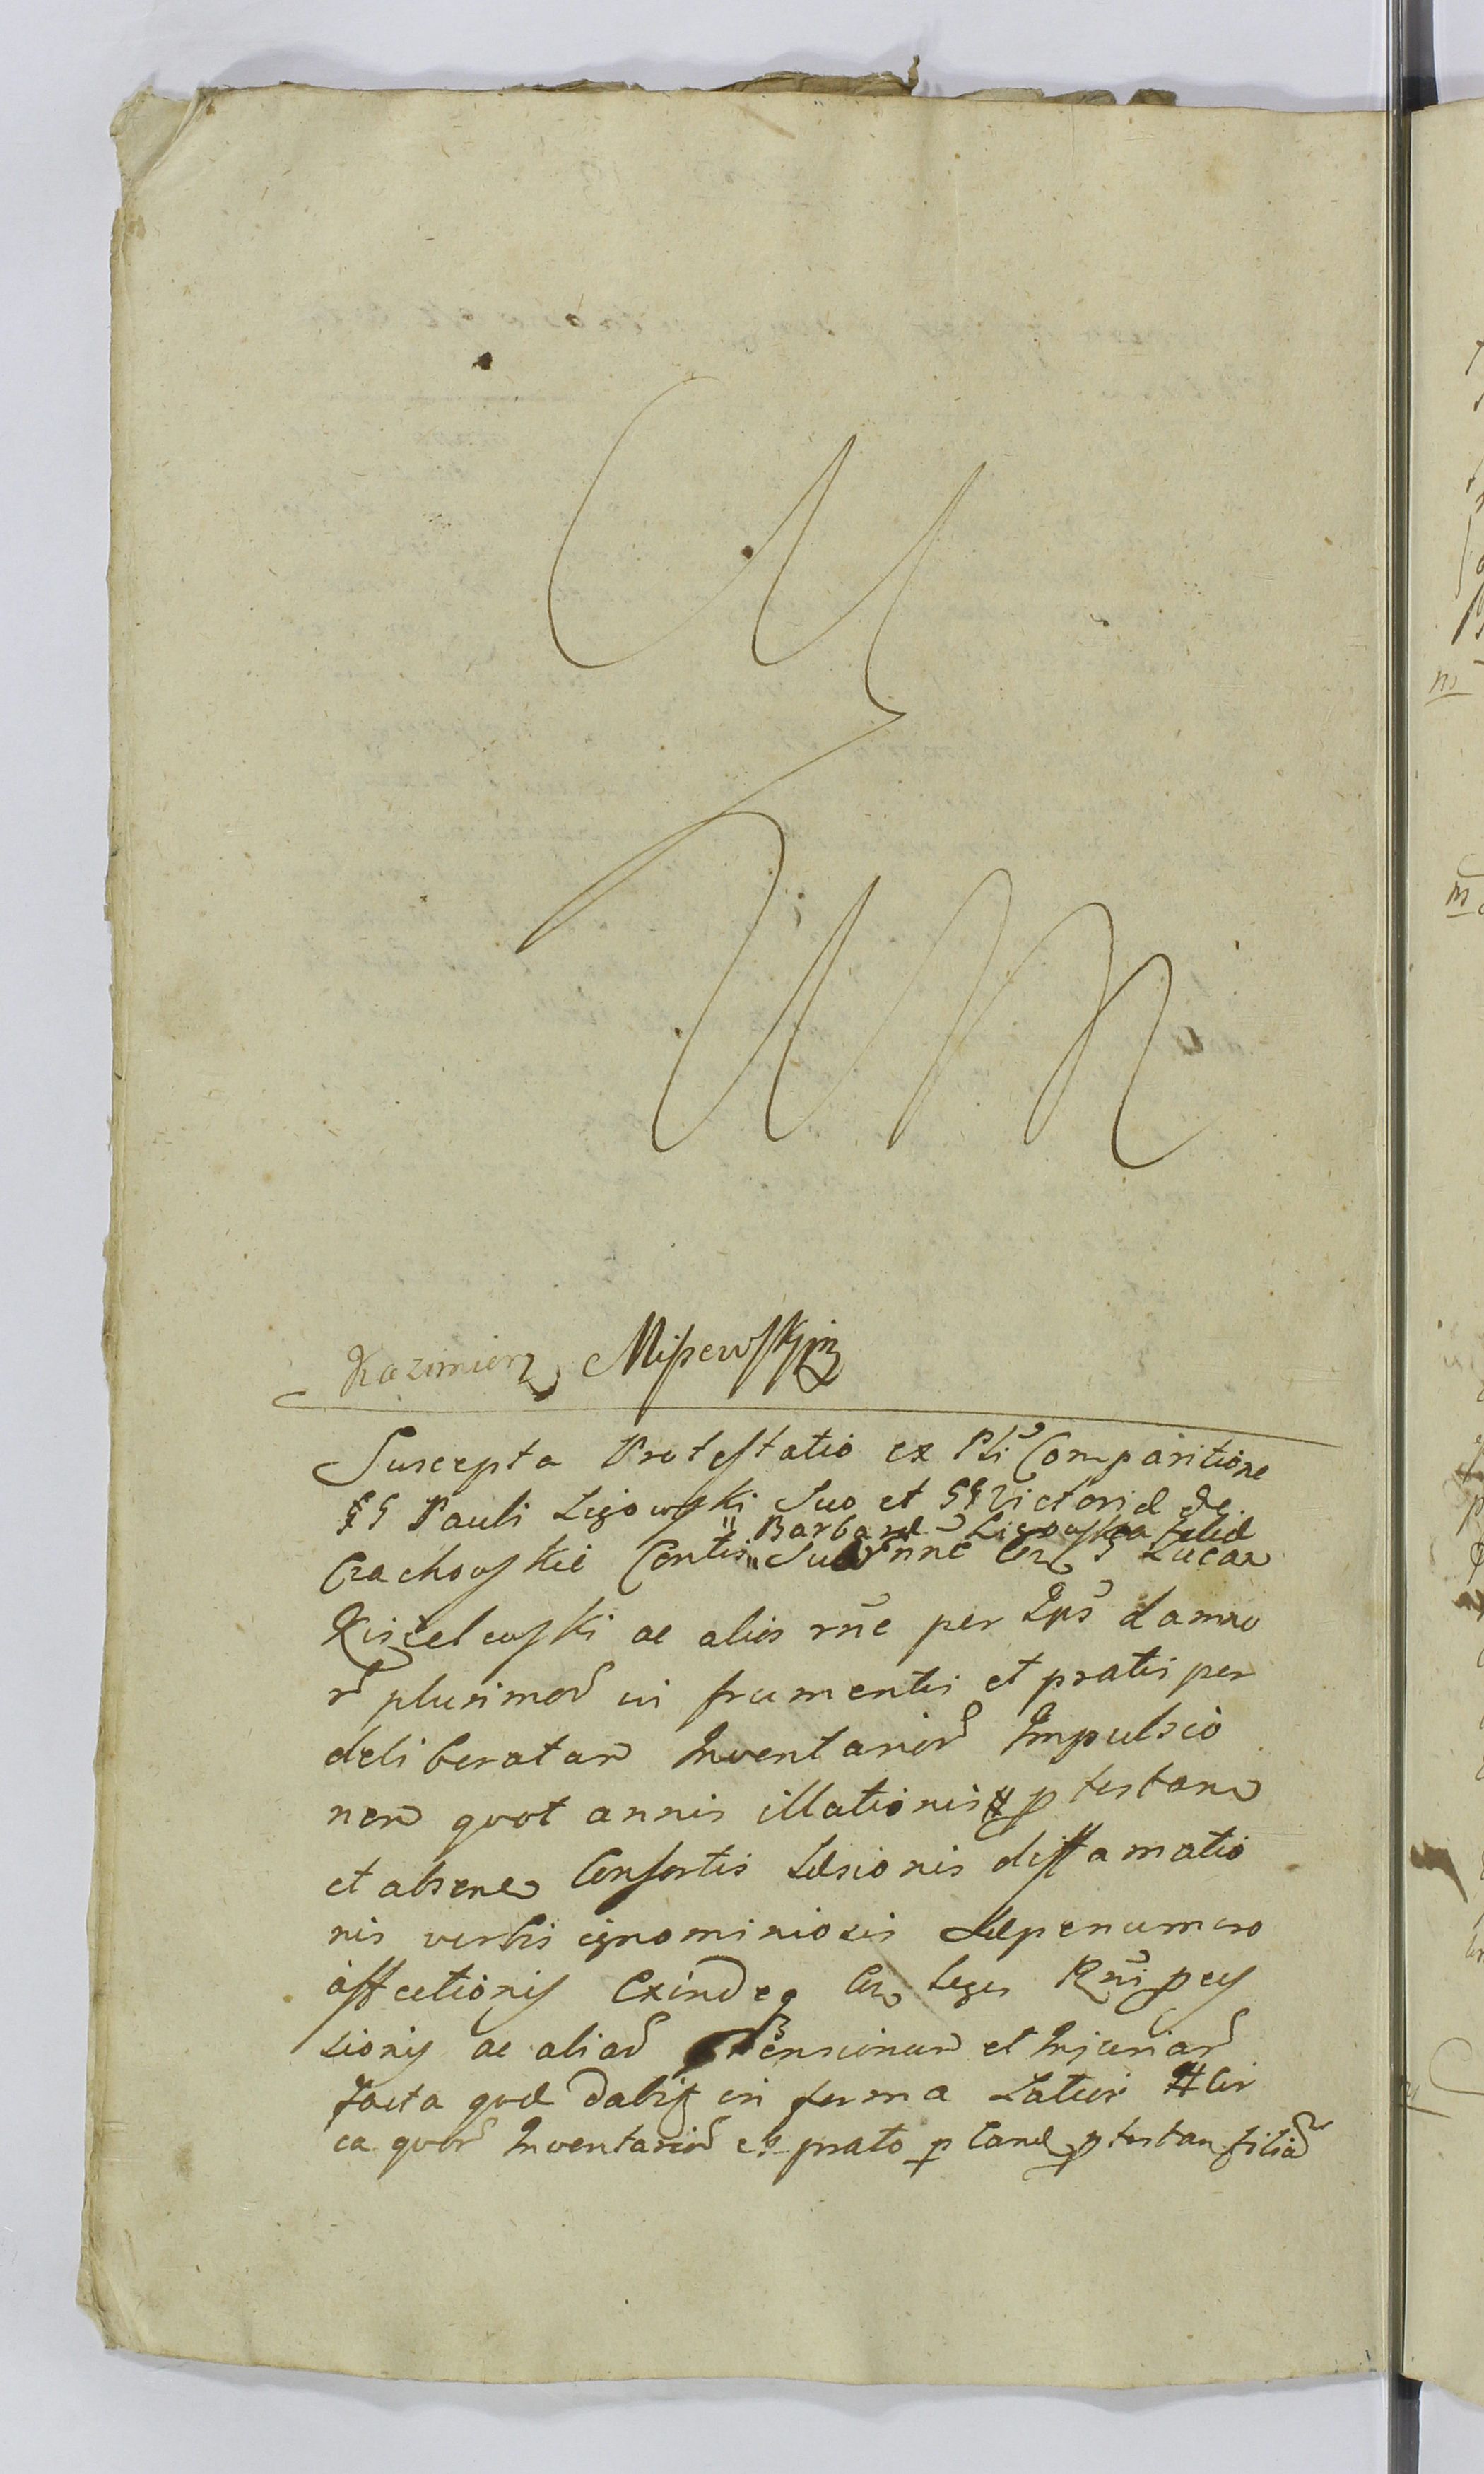 Kazimierz Misewski
Suscepta Protestatio ex Pti Comparitione
Pauli Ligowski Suo et Victoriæ de
Barbaræ Ligowska filiæ
Czachowskie Contis Suo nne Con S Lucan
Kiszelewski ac alios rne per Eps damno
r plurimor in frumentis et pratis per
deliberatan Inventarior Impulsio
nen quot annis illationis ptestane
et absene Consortis Læsionis diffamatio
nis verbis ignominiosis Sæpenumero
affectionis Exindeq Con Leges Rni pces
sionis ac aliar et Injuriar
facta quæ dabit in forma Latior Cir
ca quor Inventarior ex prato p Cand ptestan filiar